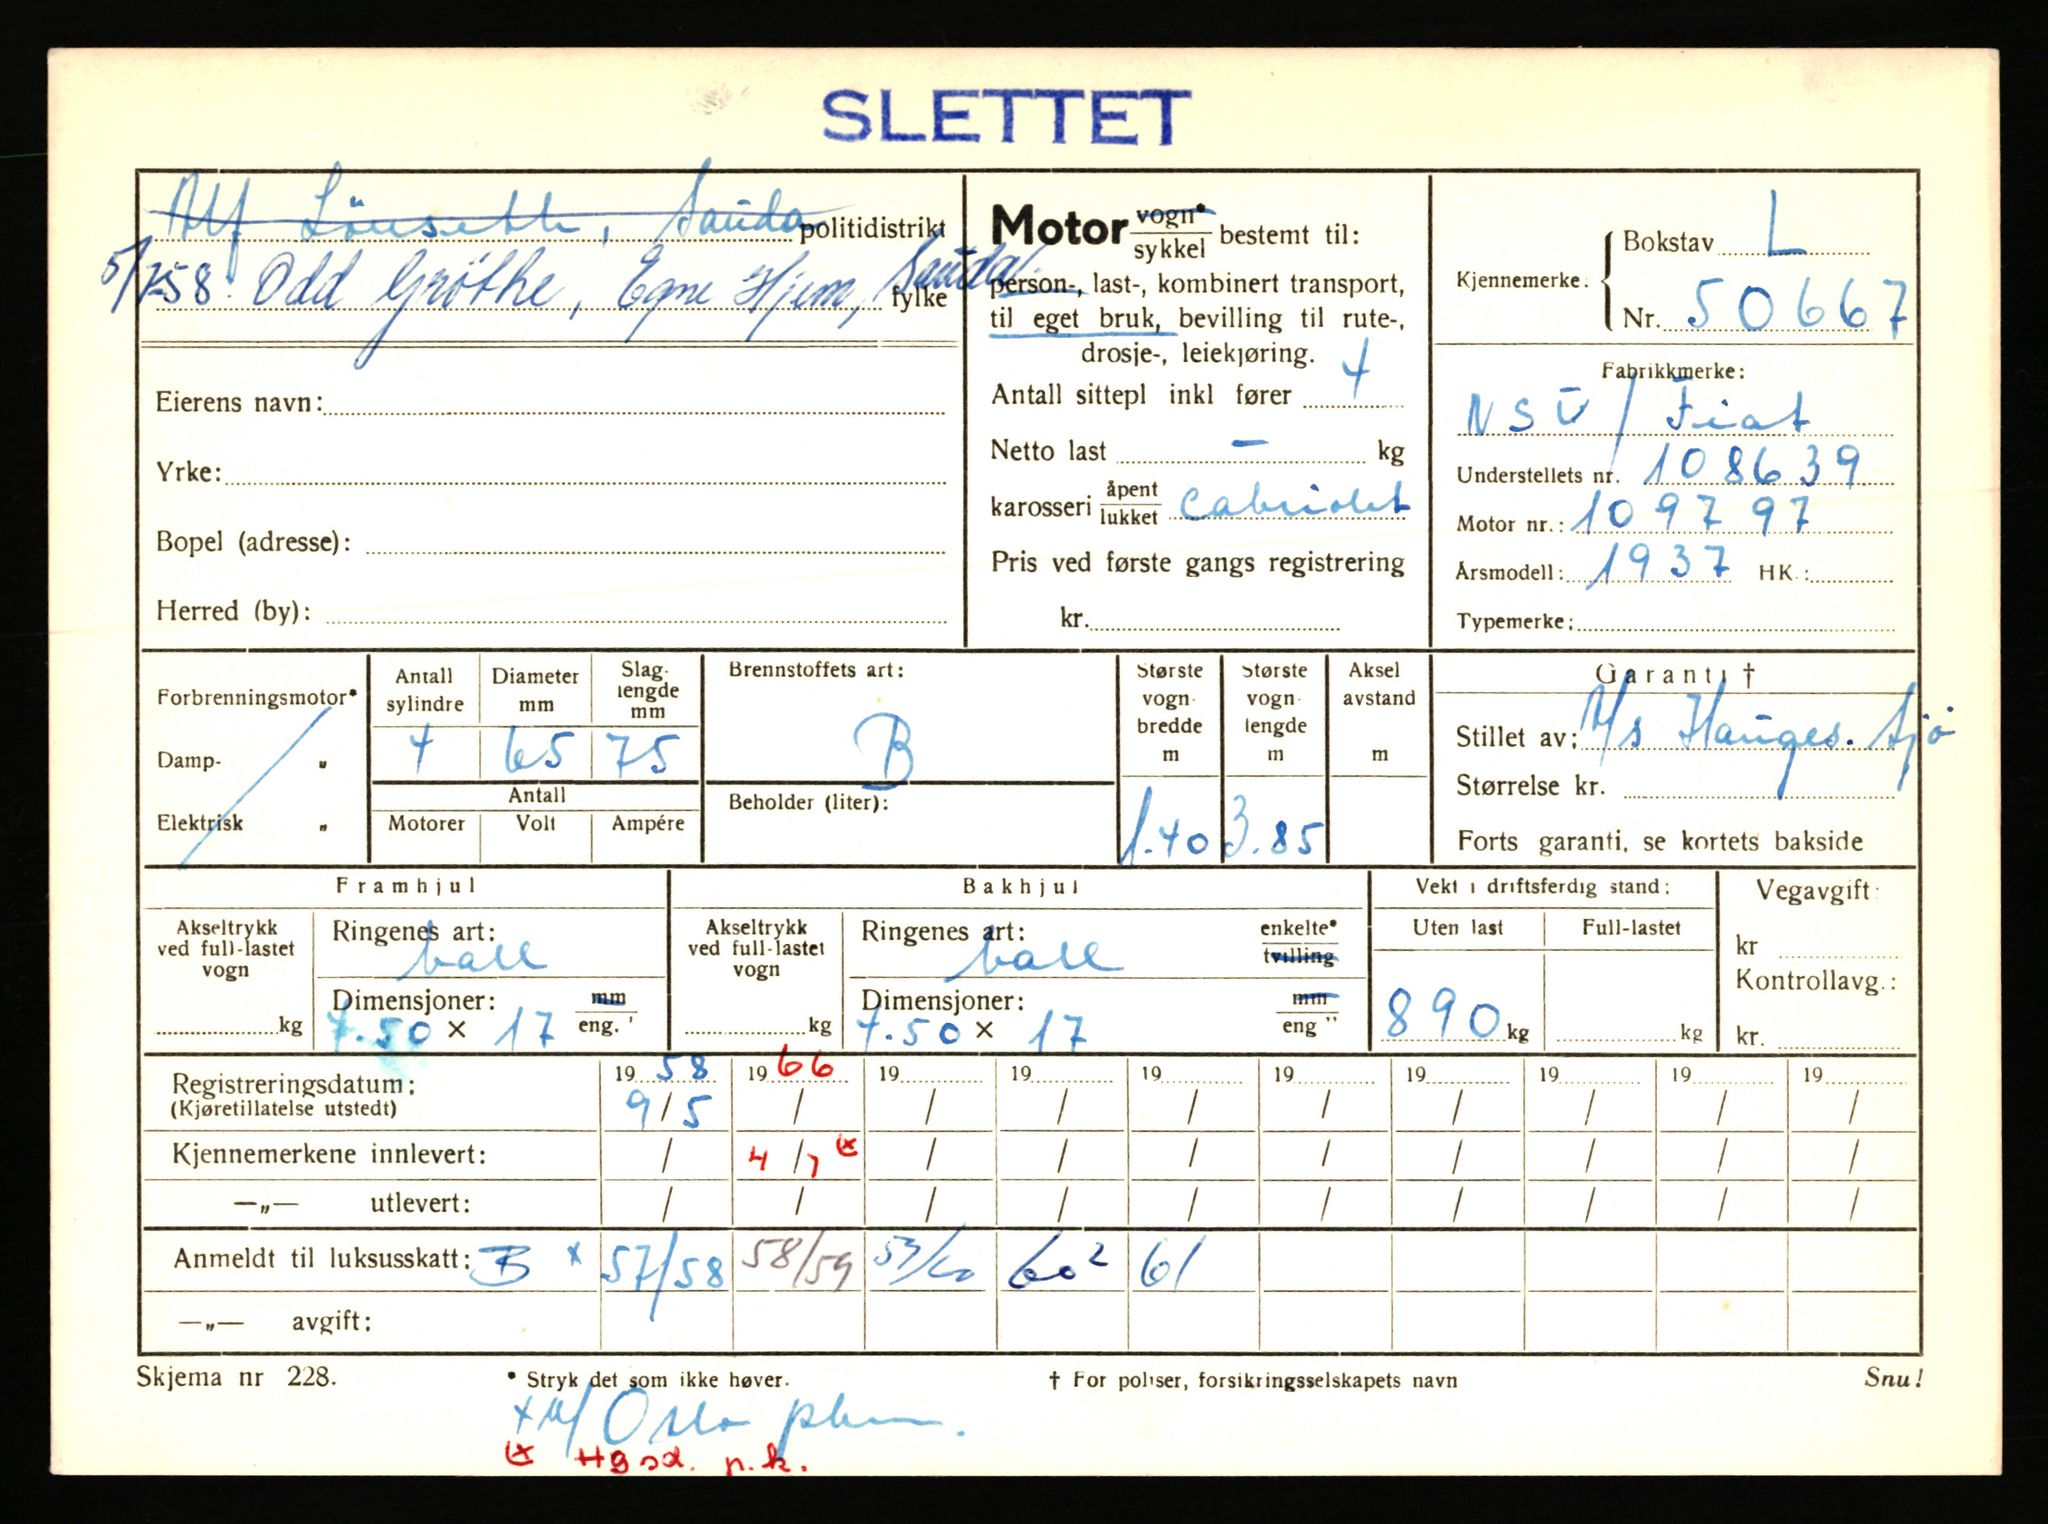 SLETTET
Alf Lönseth, Sauda politidistrikt
5/7 58. Odd Grøthe, Egne Hjem, Sauda. fylke
Eierens navn:
Yrke:
Bopel (adresse):
Herred (by):
Motor vogn* / sykkel bestemt til:
person-, last-, kombinert transport,
til eget bruk, bevilling til rute-,
drosje-, leiekjøring.
Antall sittepl inkl fører 4
Netto last — kg
karosseri åpent / lukket cabriolet
Pris ved første gangs registrering
kr.
Kjennemerke. Bokstav L
Nr. 50667
Fabrikkmerke:
NSU / Fiat
Understellets nr. 108639
Motor nr.: 109797
Årsmodell: 1937 HK.:
Typemerke:
Forbrenningsmotor*
Damp- „
Elektrisk „
Antall sylindre Diameter mm Slag-lengde mm
4 65 75
Antall
Motorer Volt Ampére
Brennstoffets art:
B
Beholder (liter):
Største vogn-bredde m Største vogn-lengde m Aksel avstand m
1.40 3.85
Garanti †
Stillet av: A/s Hauges. Sjö
Størrelse kr.
Forts garanti, se kortets bakside
Framhjul
Akseltrykk ved full-lastet vogn
kg
Ringenes art:
ball
Dimensjoner: mm / eng. "
7.50 × 17
Bakhjul
Akseltrykk ved full-lastet vogn
kg
Ringenes art: enkelte* / tvilling
ball
Dimensjoner: mm / eng "
7.50 × 17
Vekt i driftsferdig stand:
Uten last Full-lastet
890 kg kg
Vegavgift:
kr
Kontrollavg.:
kr.
Registreringsdatum: 19 58 19 66 19 19 19 19 19 19 19 19
(Kjøretillatelse utstedt) 9/5 / / / / / / / / /
Kjennemerkene innlevert: / 4/7 (x / / / / / / / /
—„— utlevert: / / / / / / / / / /
Anmeldt til luksusskatt: B x 57/58 58/59 59/60 60² 61
—„— avgift:
Skjema nr 228. * Stryk det som ikke høver. † For poliser, forsikringsselskapets navn Snu!
(x Hgsd. p.k.